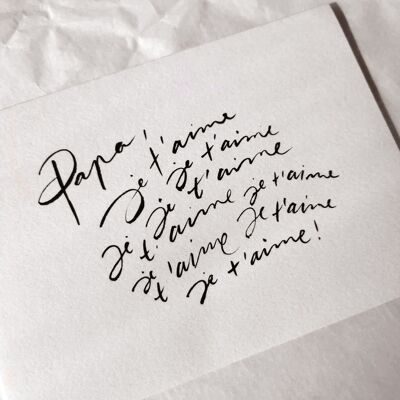 Papa!
je t'aime
je t'aime
je t'aime
je t'aime je t'aime
je t'aime je t'aime
je t'aime!